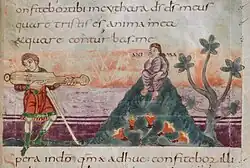 confitebor tibi in cythara ds ds meus
quare tristis es anima mea
et quare conturbas me
ANI MA
Spera in dno qm adhuc confitebor illi